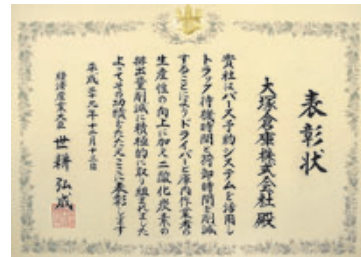 表彰状
大塚倉庫株式会社殿
貴社はバース予約システムを活用し
トラック待機時間と荷卸時間を削減
することによりドライバーと庫内作業者の
生産性の向上に加え二酸化炭素の
排出量削減に積極的に取り組まれました
よってその功績をたたえここに表彰します
平成二十九年十二月十三日
経済産業大臣 世耕弘成